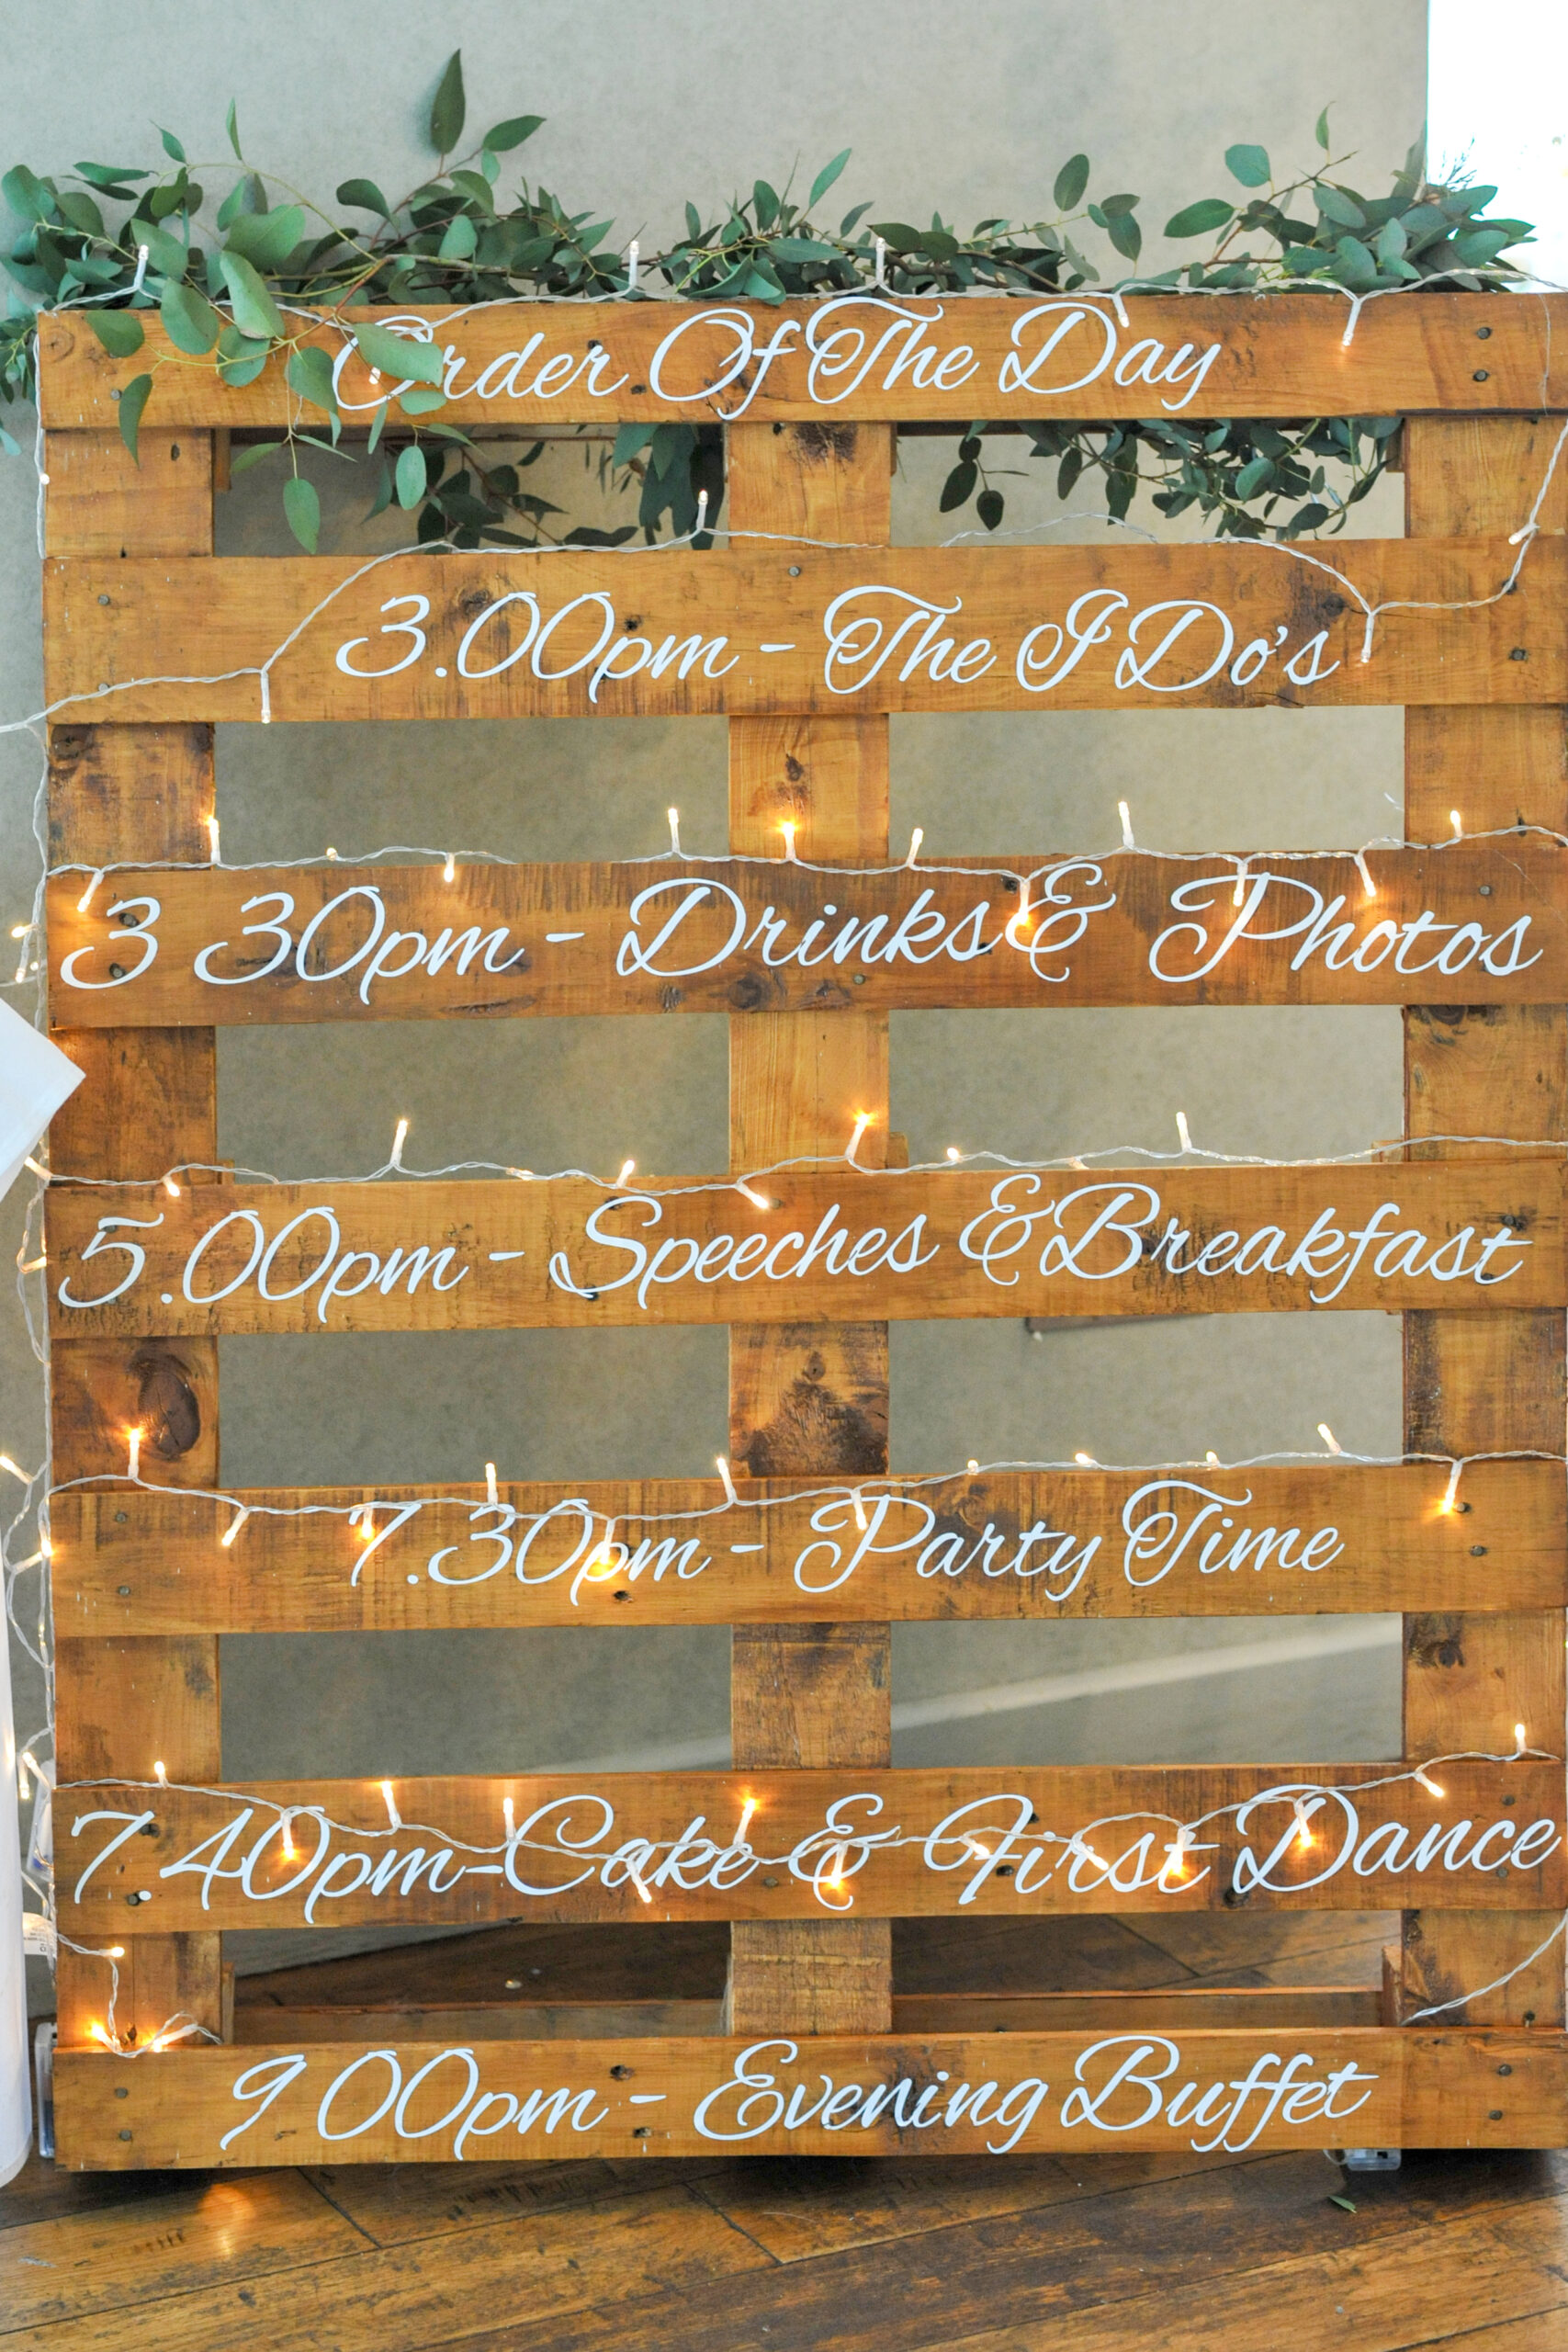 Order Of The Day
3.00pm - The I Do's
3 30pm - Drinks & Photos
5.00pm - Speeches & Breakfast
7.30pm - Party Time
7.40pm-Cake & First Dance
9 00pm - Evening Buffet